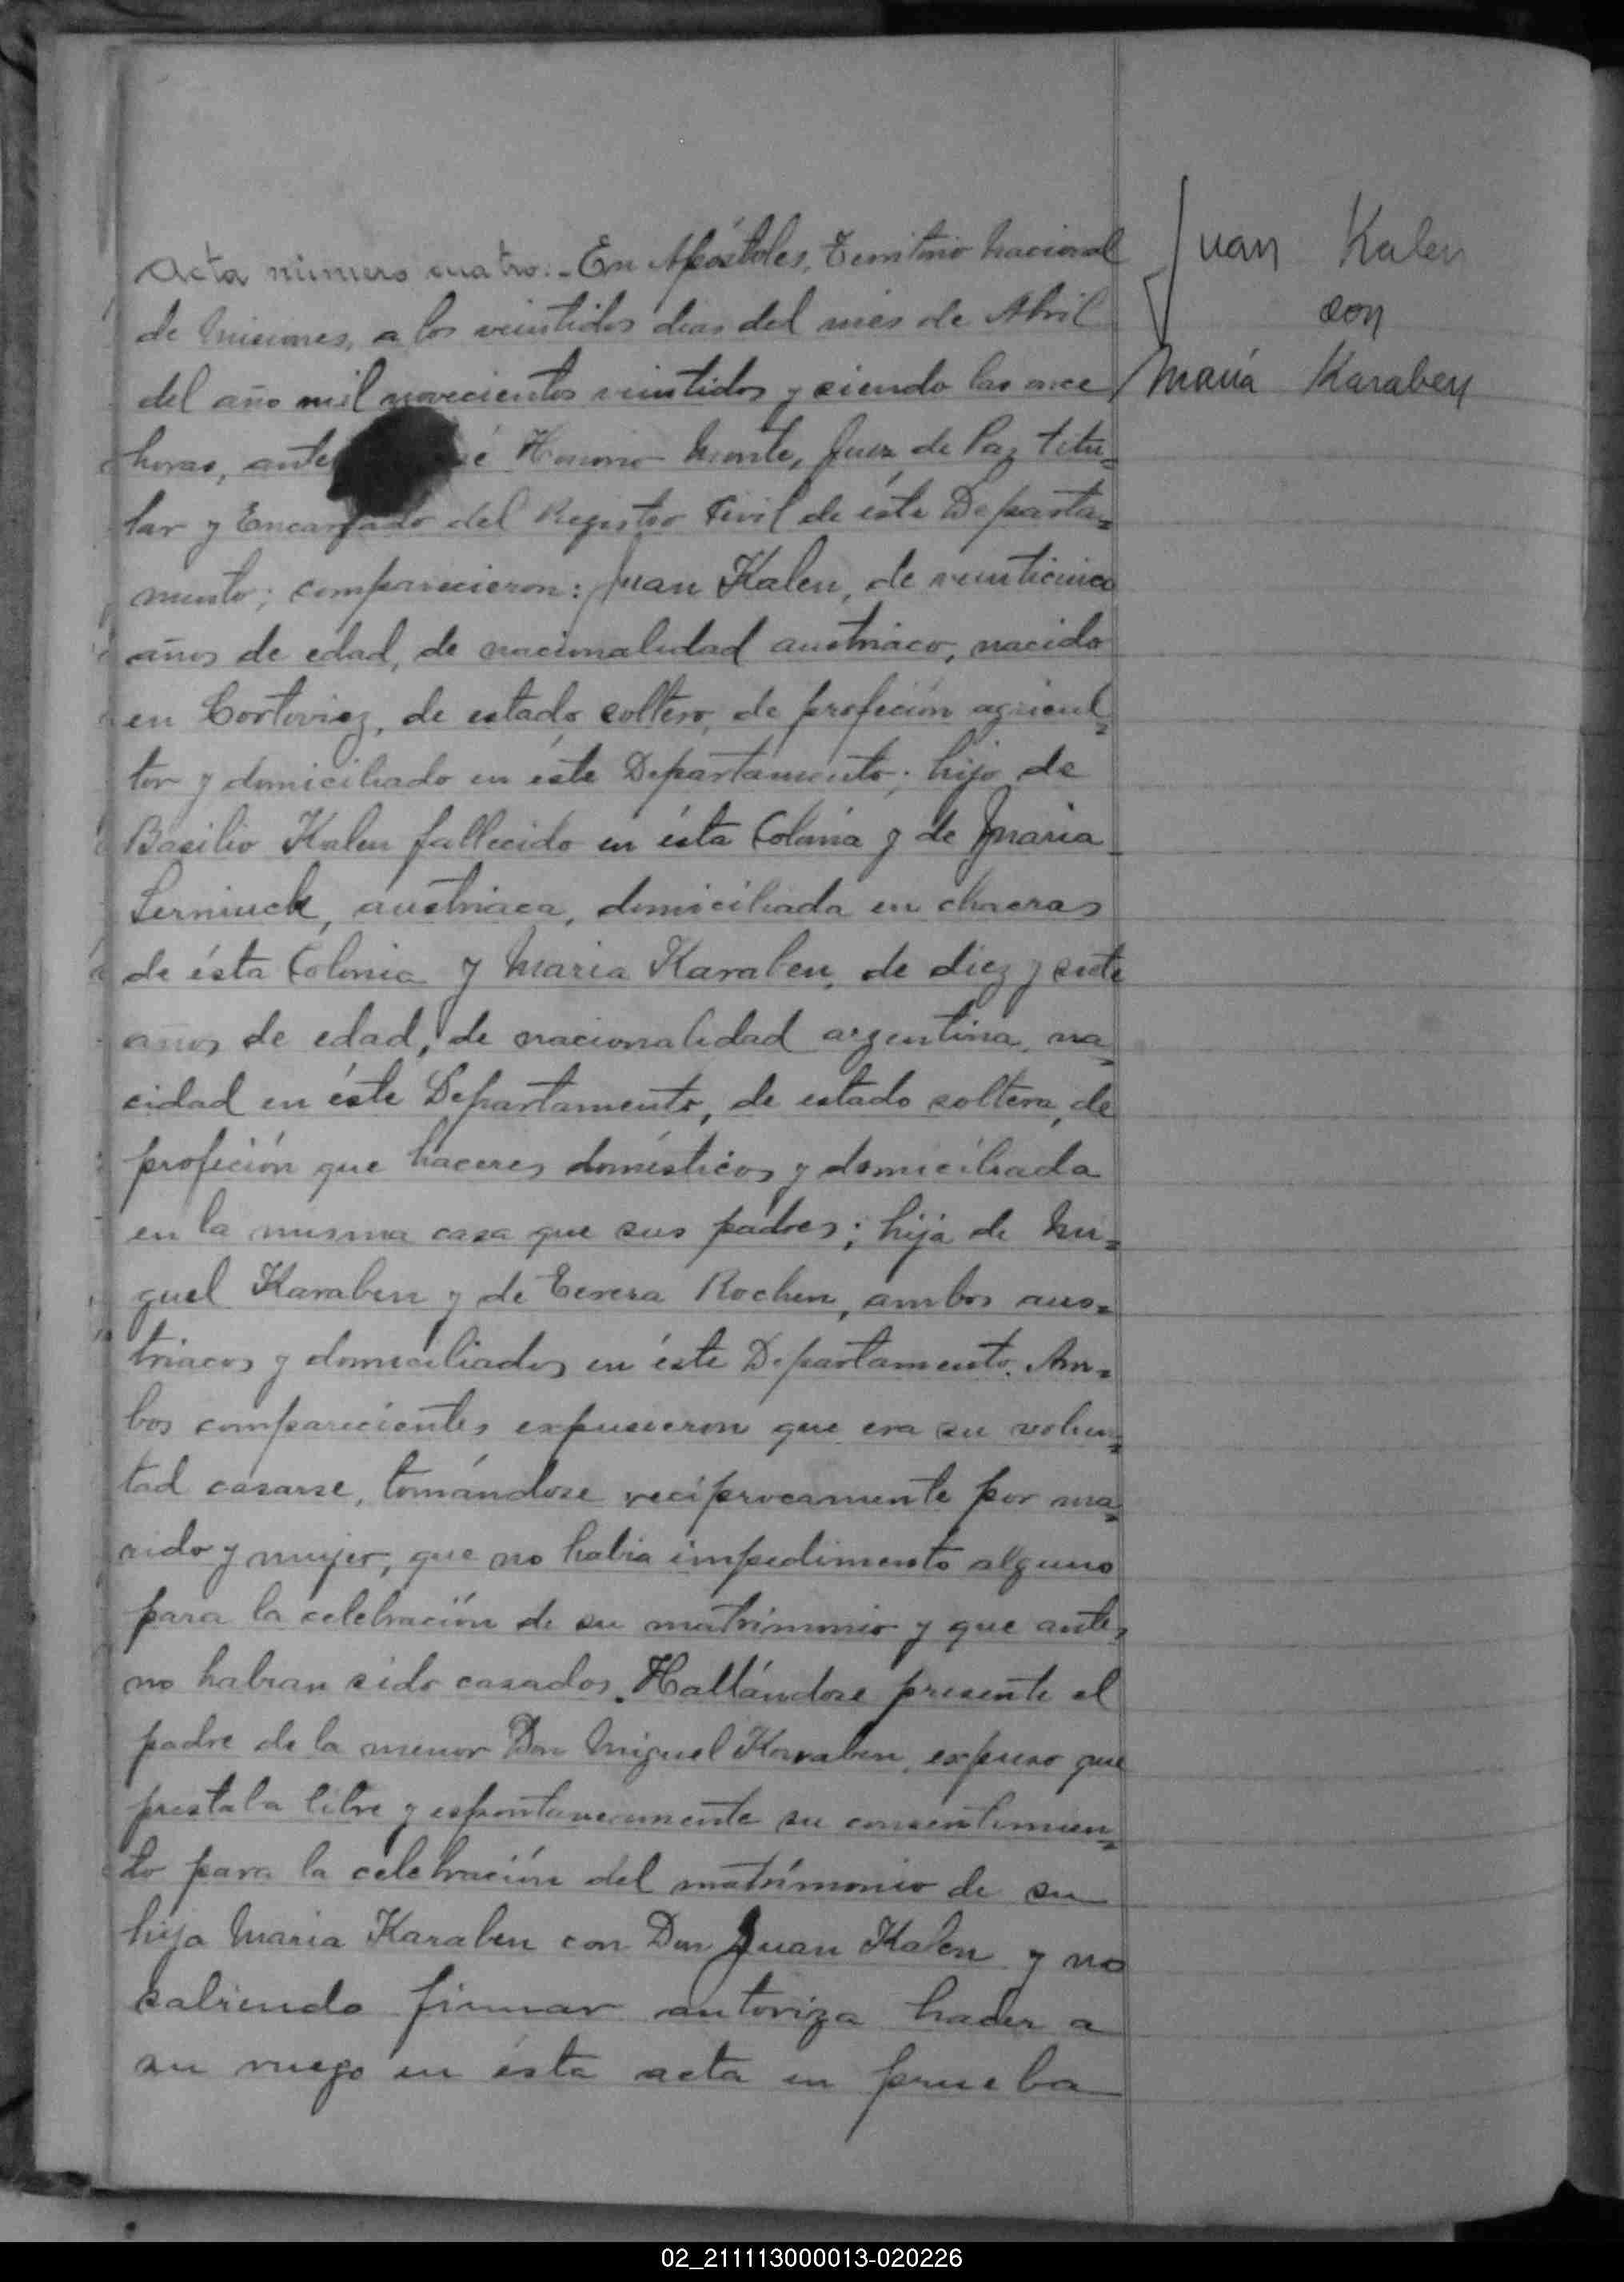 Acta número cuatro.- En Apóstoles, Territorio Nacional
de Misiones, a los veintidos dias del mes de Abril
del año mil novecientos veintidos y siendo las once
horas, ante é Honorio Monte, Juez de Paz titu=
lar y Encargado del Registro Civil de éste Departa=
mento; comparecieron: Juan Kalen, de veinticinco
años de edad, de nacionalidad austriaco, nacido
en Cortoviez, de estado soltero, de profeción agricul=
tor y domiciliado en éste Departamento; hijo de
Basilio Kalen fallecido en ésta Colonia y de Maria
Serniuck, austriaca, domiciliada en chacras
de ésta Colonia y Maria Karaben, de diez y siete
años de edad, de nacionalidad argentina, na=
cidad en éste Departamento, de estado soltera, de
profeción que haceres domésticos y domiciliada
en la misma casa que sus padres; hija de Mi=
guel Karaben y de Teresa Rochen, ambos aus=
triacos y domiciliados en éste Departamento. Am=
bos comparecientes expusieron que era su volun=
tad casarse, tomándose reciprocamente por ma=
rido y mujer, que no habia impedimento alguno
para la celebración de su matrimonio y que antes
no habian sido casados. Hallándose presente el
padre de la menor Don Miguel Karaben, expuso que
prestaba libre y espontaneamente su consentimien=
to para la celebración del matrimonio de su
hija Maria Karaben con Don Juan Kalen y no
sabiendo firmar autoriza hacer a
su ruego en ésta acta en prueba
Juan Kalen
con
Maria Karaben
02_211113000013-020226